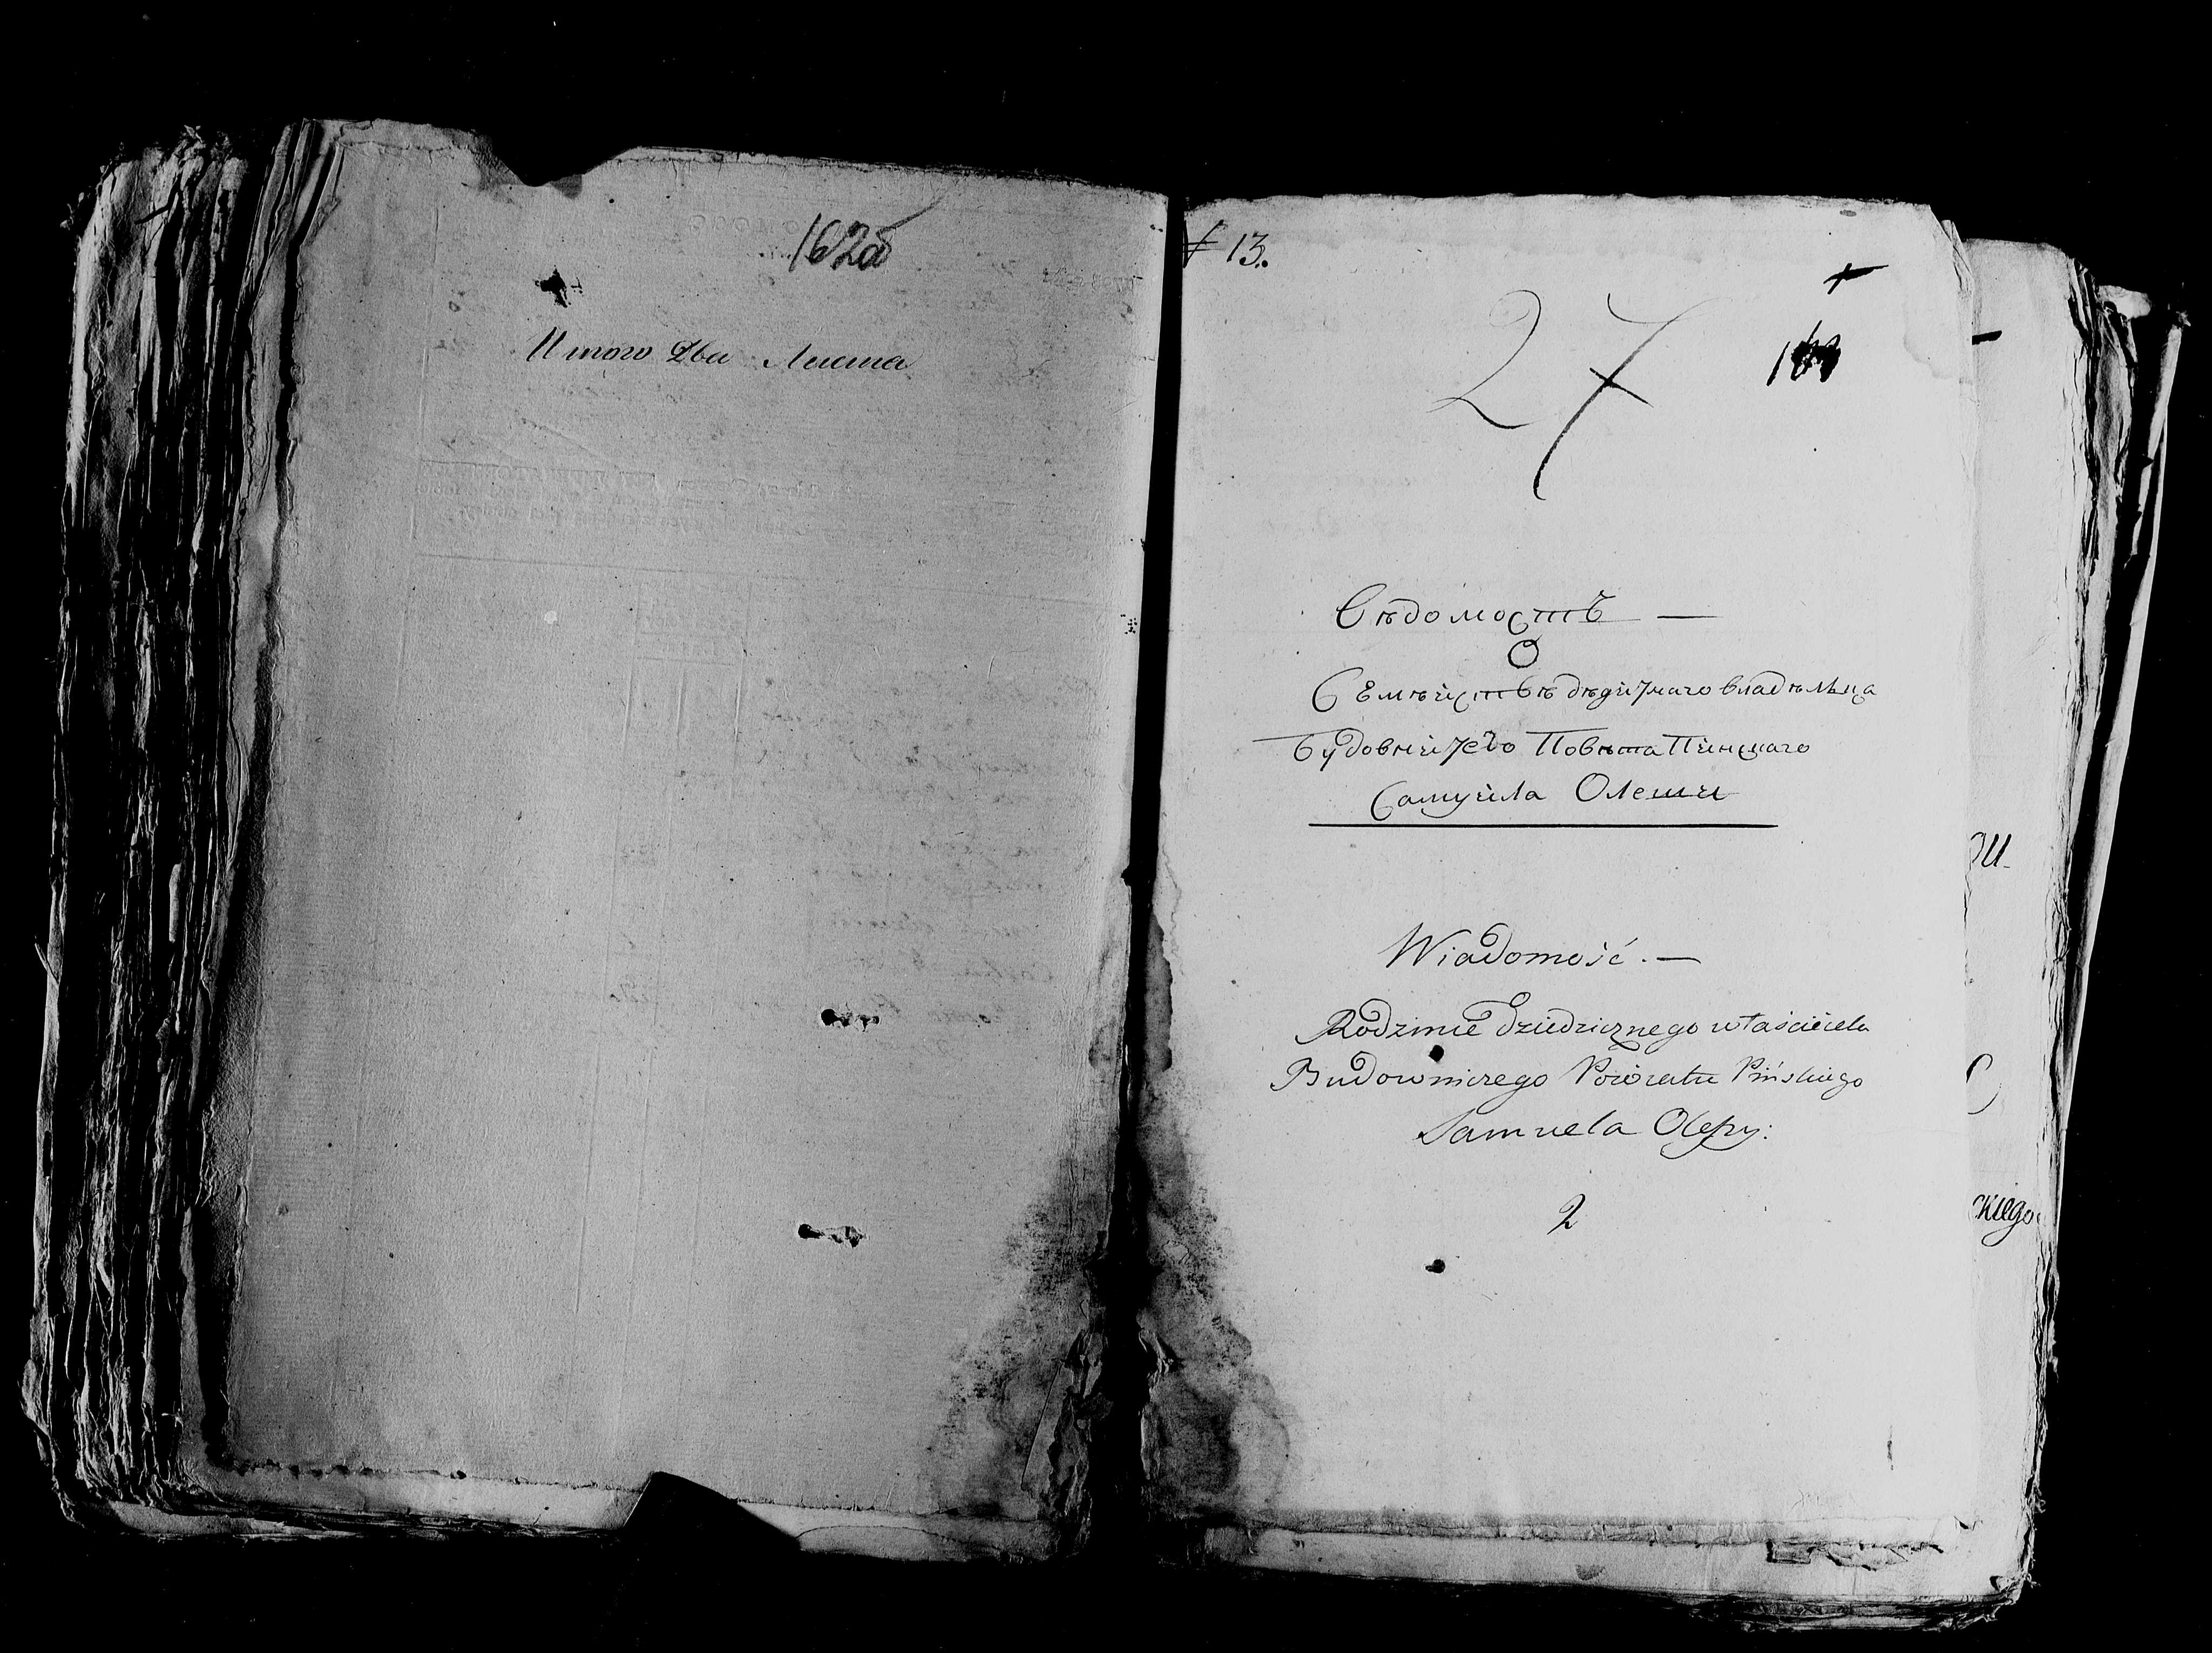 162об
Итого Два Листа
13.
27
Вѣдомостъ —
О
Семѣйствѣ дѣдичнаго владѣльца
Будовничего Повѣта Пинскаго
Самуйла Олеши
Wiadomość. —
Rodzinie Dziedzicznego właściciela
Budowniczego Powiatu Pińskiego
Samuela Oleszy:
2